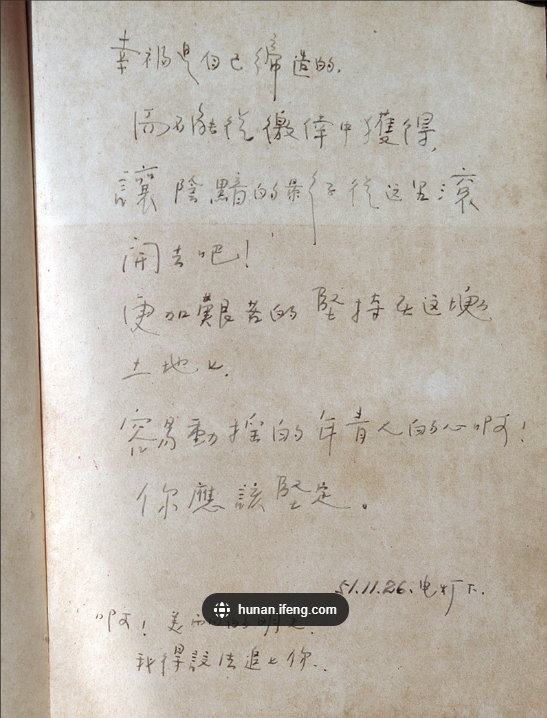 幸福是自己締造的,
而不能從徼倖中獲得,
讓陰黯的影子從这里滾
開去吧!
更加艱苦的堅持在这塊
土地上.
容易動摇的年青人的心啊!
你應該堅定。
51.11.26.电灯下.
啊! 美的明天.
我得設法追上你.
hunan.ifeng.com